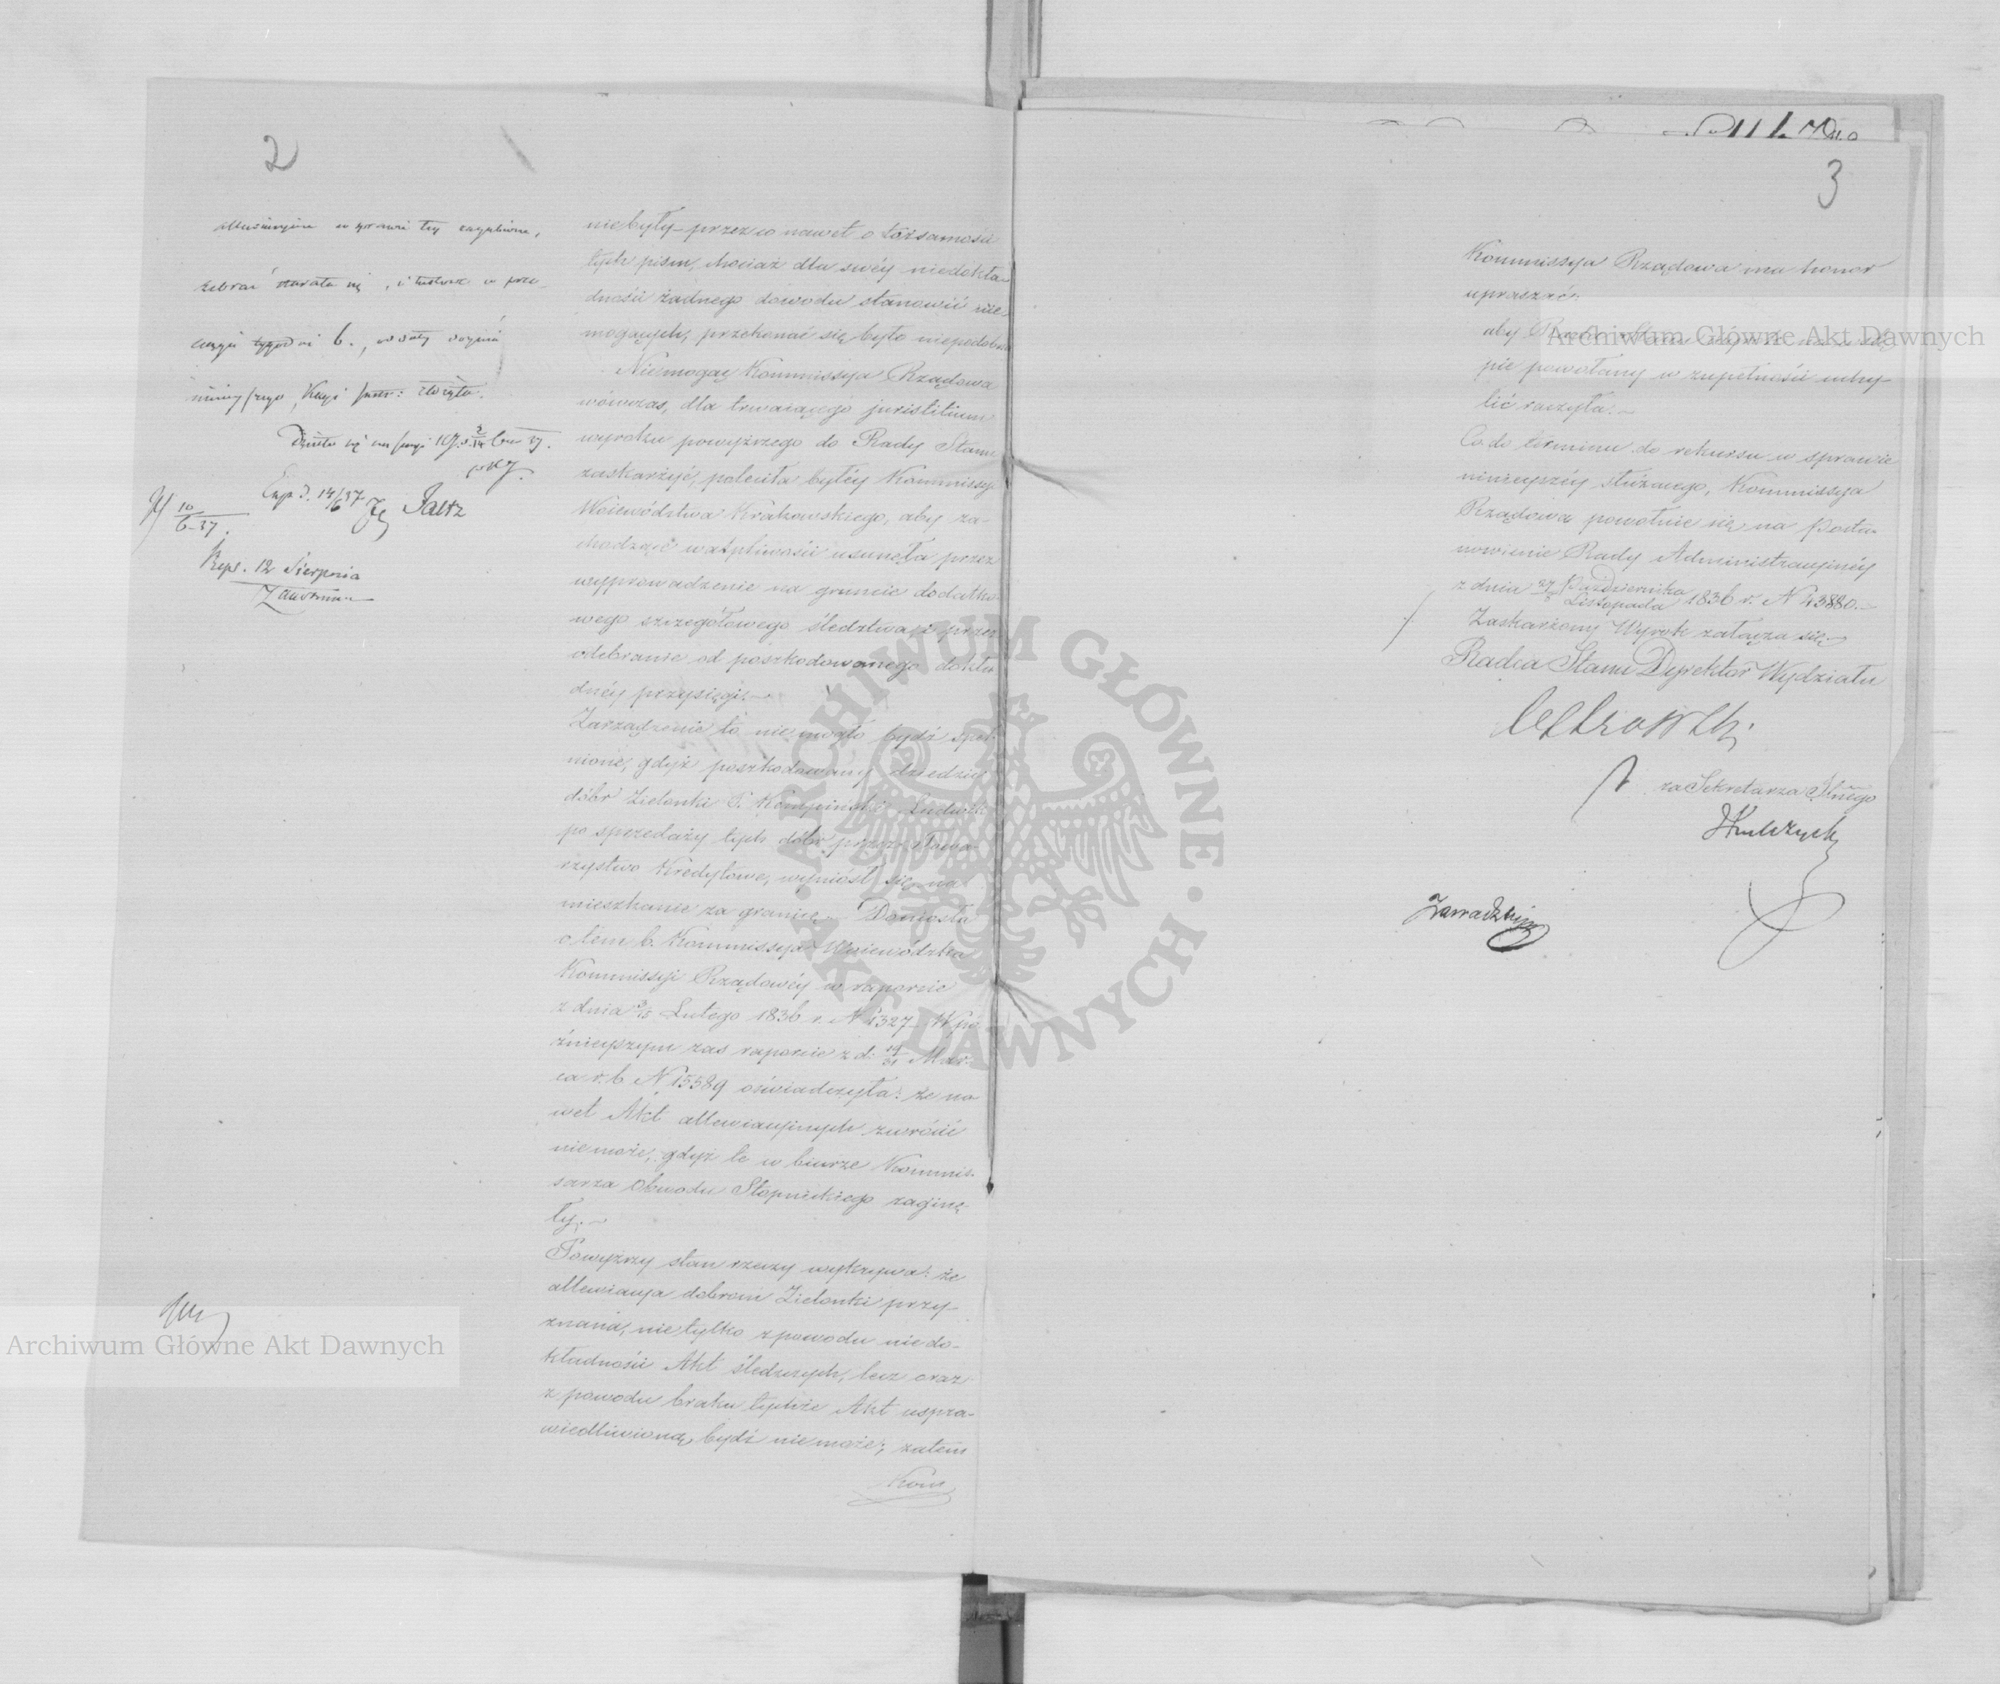 2
zebrać starała się, i takowe w prze-
ciągu tygodni 6.,
Exp. d. 14/6 37 Paltz
10/6 37.
Reps. 12 Sierpnia
niebyły przezco nawet o tożsamości
tych pism, chociaż dla swéy niedokła-
dności żadnego dowodu stanowić nie
mogących, przekonać się było niepodobna
Niemogąc Kommissya Rządowa
wówczas, dla trwaiącego juristitium
wyroku powyższego do Rady Stanu
zaskarżyć, poleciła byłéy Kommissyi
Województwa Krakowskiego, aby za-
chodzące wątpliwości usunęła przez
wyprowadzenie na gruncie dodatko-
wego szczegółowego śledztwa, i przez
odebranie od poszkodowanego dokła-
dnéy przysięgi.
Zarządzenie to nie mogło bydź speł-
nione, gdyż poszkodowany dziedzic
dóbr Zielonki P. Kempiński Ludwik
po sprzedaży tych dóbr przez Towa-
rzystwo Kredytowe, wyniósł się na
mieszkanie za granicę. Doniosła
o tem b. Kommissya Województwa
Kommissyi Rządowéy w raporcie
z dnia 3/15 Lutego 1836 r. N 1327 W pó-
źnieyszym zaś raporcie z d. 19/31 Mar-
ca r. b. N 15589 oświadczyła: że na-
wet Akt allewiacyinych zwrócić
niemoże, gdyż te w biurze Kommis-
sarza Obwodu Stopnickiego zaginę-
ły.
Powyższy stan rzeczy wykrywa: że
allewiacya dobrom Zielonki przy-
znana, nietylko z powodu niedo-
kładności Akt śledczych, lecz oraz
z powodu braku tychże Akt uspra-
wiedliwioną bydź niemoże; zatem
Kom
3
Kommissya Rządowa ma honor
upraszać:
aby Rada Stanu wyrok na wstę-
pie powołany w zupełności uchy-
lić raczyła.
Co do terminu do rekursu w sprawie
ninieyszéy służącego, Kommissya
Rządowa powołuie się na Posta-
nowienie Rady Administracyinéy
z dnia 27/8 Października/Listopada 1836 r. N 43880.
Zaskarżony Wyrok załącza się.
Radca Stanu Dyrektor Wydziału
za Sekretarza Jlnego
Archiwum Główne Akt Dawnych
Archiwum Główne Akt Dawnych
ARCHIWUM GŁÓWNE · AKT DAWNYCH ·